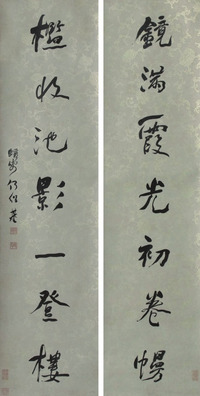 鏡滿霞光初卷幔
檻收池影一登樓
蝯叟何紹基